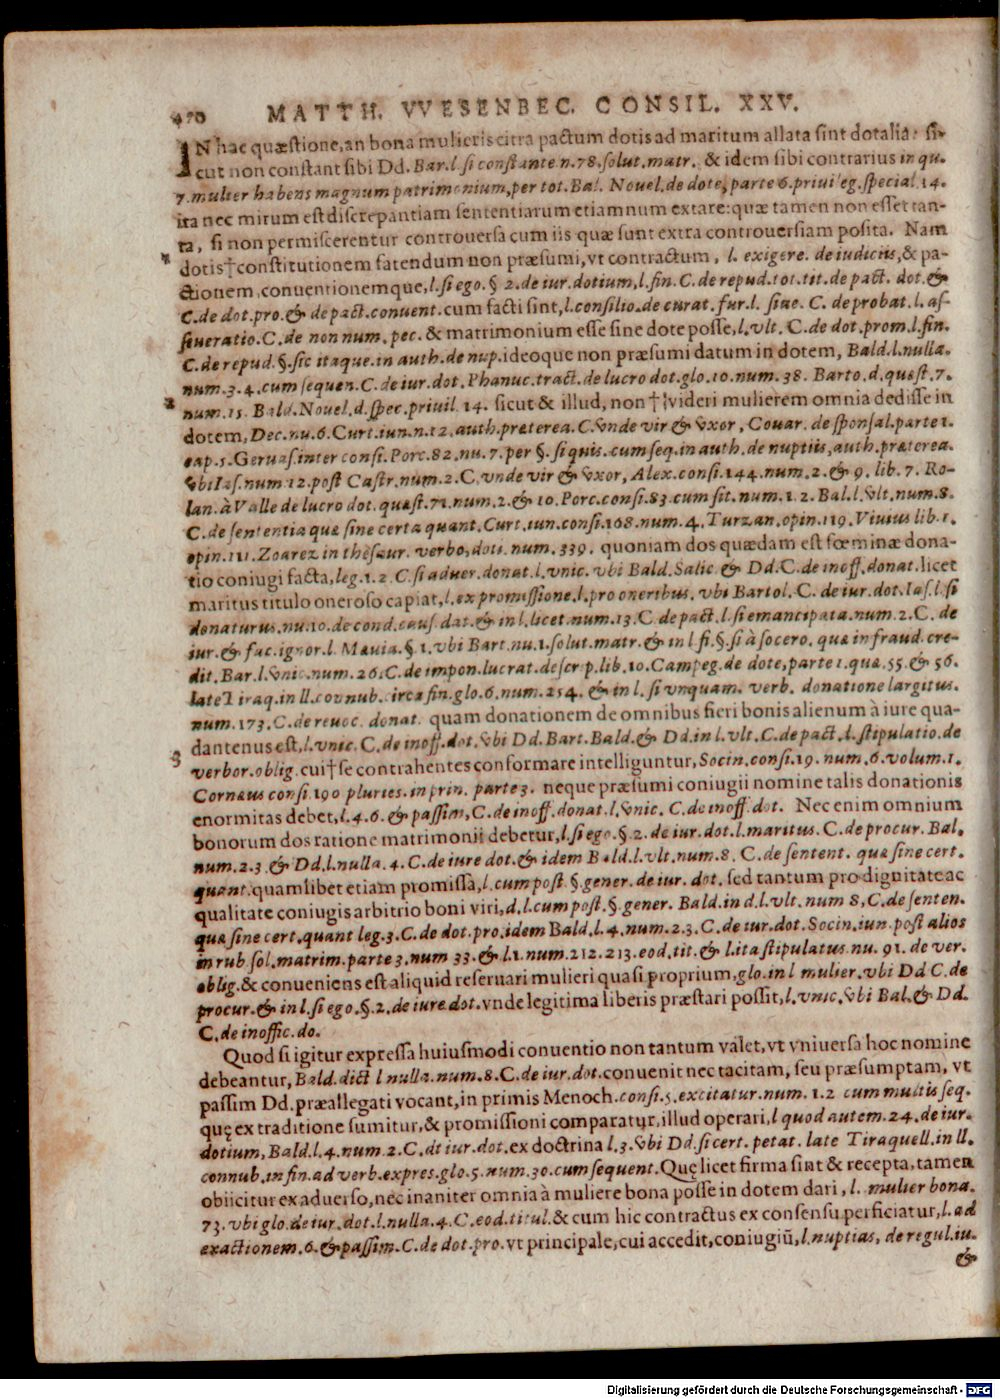 470 MATTH. VVESENBEC. CONSIL. XXV.
IN hac quæstione, an bona mulieris citra pactum dotis ad maritum allata sint dotalia: si-
cut non constant sibi Dd. Bar. l. si constante n. 78. solut. matr. & idem sibi contrarius in qu.
7. mulier habens magnum patrimonium, per tot. Bal. Nouel. de dote, parte 6. priuileg. special. 14.
ita nec mirum est discrepantiam sententiarum etiamnum extare: quæ tamen non esset tan-
ta, si non permiscerentur controuersa cum iis quæ sunt extra controuersiam posita. Nam
dotis † constitutionem fatendum non præsumi, vt contractum, l. exigere. de iudiciis, & pa-
ctionem, conuentionemque, l. si ego. § 2. de iur. dotium, l. fin. C. de repud. tot. tit. de pact. dot. &
C. de dot. pro. & de pact. conuent. cum facti sint, l. consilio. de curat. fur. l. siue. C. de probat. l. as-
seueratio. C. de non num. pec. & matrimonium esse sine dote posse, l. vlt. C. de dot. prom. l. fin.
C. de repud. §. sic itaque. in auth. de nup. ideoque non præsumi datum in dotem, Bald. l. nulla.
num. 3. 4. cum sequen. C. de iur. dot. Phanuc. tract. de lucro dot. glo. 10. num. 38. Barto. d. quæst. 7.
2 num. 15. Bald. Nouel. d. spec. priuil. 14. sicut & illud, non † videri mulierem omnia dedisse in
dotem, Dec. nu. 6. Curt. iun. n. 12. auth. præterea. C. vnde vir & vxor, Couar. de sponsal. parte 1.
cap. 5. Geruas. inter consi. Porc. 82. nu. 7. per §. si quis. cum seq. in auth. de nuptiis, auth. præterea.
vbi Ias. num 12. post Castr. num. 2. C. vnde vir & vxor, Alex. consi. 144. num. 2. & 9. lib. 7. Ro-
lan. à Valle de lucro dot. quæst. 71. num. 2. & 10. Porc. consi. 83. cum sit. num. 1. 2. Bal. l. vlt. num. 8.
C. de sententia quæ sine certa quant. Curt. iun. consi. 168. num. 4. Turzan. opin. 119. Viuius lib. 1.
opin. 111. Zoarez in thesaur. verbo, doti. num. 339. quoniam dos quædam est fœminæ dona-
tio coniugi facta, leg. 1. 2. C. si aduer. donat. l. vnic. vbi Bald. Salic. & Dd. C. de inoff. donat. licet
maritus titulo oneroso capiat, l. ex promissione. l. pro oneribus. vbi Bartol. C. de iur. dot. Ias. l. si
donaturus. nu. 10. de cond. caus. dat. & in l. licet. num. 13. C. de pact. l. si emancipata. num. 2. C. de
iur. & fac. ignor. l. Mæuia. §. 1. vbi Bart. nu. 1. solut. matr. & in l. fi. §. si à socero. quæ in fraud. cre-
dit. Bar. l. vnic. num. 26. C. de impon. lucrat. descrip. lib. 10. Campeg. de dote, parte 1. quæ. 55. & 56.
late Tiraq. in ll. connub. circa fin. glo. 6. num. 254. & in l. si vnquam. verb. donatione largitus.
num. 173. C. de reuoc. donat. quam donationem de omnibus fieri bonis alienum à iure qua-
dantenus est, l. vnic. C. de inoff. dot. vbi Dd. Bart. Bald. & Dd. in l. vlt. C. de pact. l. stipulatio. de
3 verbor. oblig. cui † se contrahentes conformare intelliguntur, Socin. consi. 19. num. 6. volum. 1.
Cornæus consi. 190 pluries. in prin. parte 3. neque præsumi coniugii nomine talis donationis
enormitas debet, l. 4. 6. & passim, C. de inoff. donat. l. vnic. C. de inoff. dot. Nec enim omnium
bonorum dos ratione matrimonii debetur, l. si ego. §. 2. de iur. dot. l. maritus. C. de procur. Bal.
num. 2. 3. & Dd. l. nulla. 4. C. de iure dot. & idem Bald. l. vlt. num. 8. C. de sentent. quæ sine cert.
quant. quamlibet etiam promissa, l. cum post. §. gener. de iur. dot. sed tantum pro dignitate ac
qualitate coniugis arbitrio boni viri, d. l. cum post. §. gener. Bald. in d. l. vlt. num 8, C. de senten.
quæ sine cert. quant leg. 3. C. de dot. pro. idem Bald. l. 4. num. 2. 3. C. de iur. dot. Socin. iun. post alios
in rub. sol. matrim. parte 3. num 33. & l. 1. num. 212. 213. eod. tit. & l. ita stipulatus. nu. 91. de ver.
oblig. & conueniens est aliquid reseruari mulieri quasi proprium, glo. in l mulier. vbi Dd C. de
procur. & in l. si ego. §. 2. de iure dot. vnde legitima liberis præstari possit, l. vnic. vbi Bal. & Dd.
C. de inoffic. do.
Quod si igitur expressa huiusmodi conuentio non tantum valet, vt vniuersa hoc nomine
debeantur, Bald. dict l nulla. num. 8. C. de iur. dot. conuenit nec tacitam, seu præsumptam, vt
passim Dd. præallegati vocant, in primis Menoch. consi. 5. excitatur. num. 1. 2 cum multis seq.
quę ex traditione sumitur, & promissioni comparatur, illud operari, l quod autem. 24. de iur.
dotium, Bald. l. 4. num. 2. C. de iur. dot. ex doctrina l. 3. vbi Dd. si cert. petat. late Tiraquell. in ll.
connub. in fin. ad verb. expres. glo. 5. num. 30. cum sequent. Quę licet firma sint & recepta, tamen
obiicitur ex aduerso, nec inaniter omnia à muliere bona posse in dotem dari, l. mulier bona.
73. vbi glo. de iur. dot. l. nulla. 4. C. eod. titul. & cum hic contractus ex consensu perficiatur, l. ad
exactionem. 6. & passim. C. de dot. pro. vt principale, cui accedit, coniugiū, l. nuptias, de regul. iu.
&
Digitalisierung gefördert durch die Deutsche Forschungsgemeinschaft - DFG